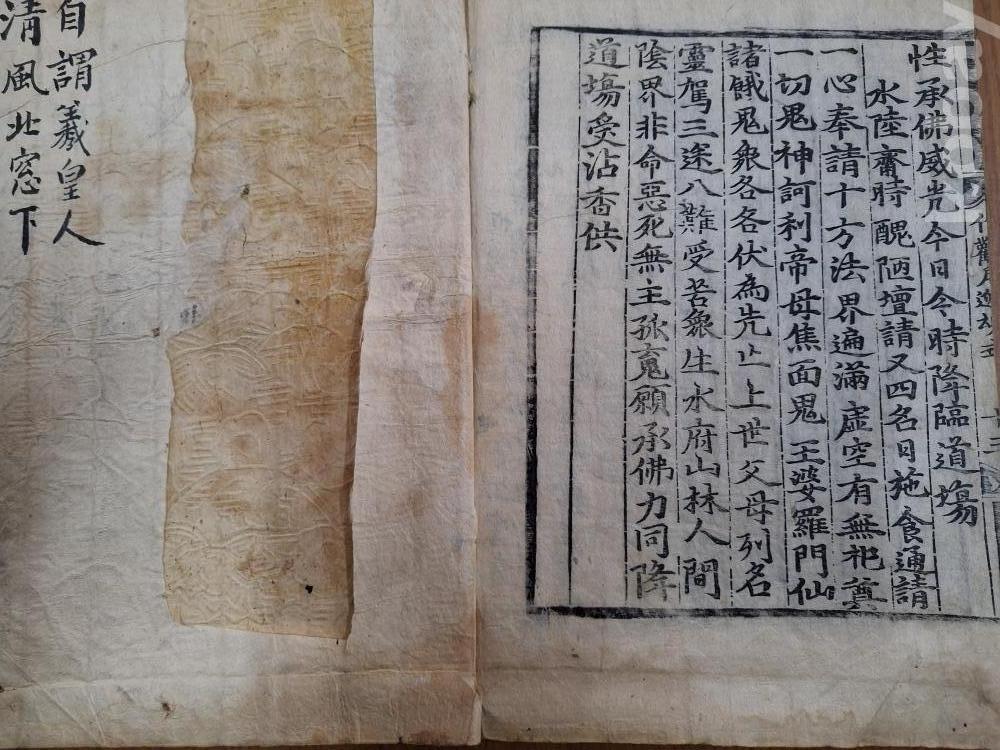 性承佛威光今日今時降臨道塲
水陸齋時醜陋壇請又四名日施食通請
一心奉請十方法界遍滿虛空有無祀奠
一切鬼神訶利帝母焦面鬼王婆羅門仙
諸餓鬼衆各各伏為先亡上世父母列名
靈駕三途八難受苦衆生水府山林人間
陰界非命惡死無主孤䰟願承佛力同降
道塲受沾香供
清風北窓下
自謂羲皇人